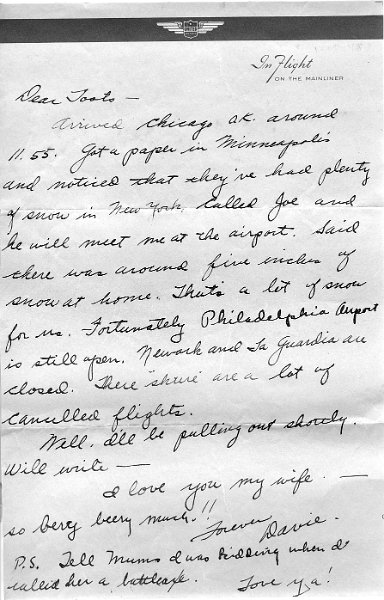 In Flight
ON THE MAINLINER
Dear Toots —
Arrived Chicago o.k. around
11:55. Got a paper in Minneapolis
and noticed that they've had plenty
of snow in New York. Called Joe and
he will meet me at the airport. Said
there was around five inches of
snow at home. That's a lot of snow
for us. Fortunately Philadelphia Airport
is still open. Newark and La Guardia are
closed. There "shure" are a lot of
cancelled flights.
Well, I'll be pulling out shortly.
Will write —
I love you my wife. —
so berry beery much.!!
Forever
Davie.
P.S. Tell Mums I was kidding when I
called her a battleaxe.
Love ya!